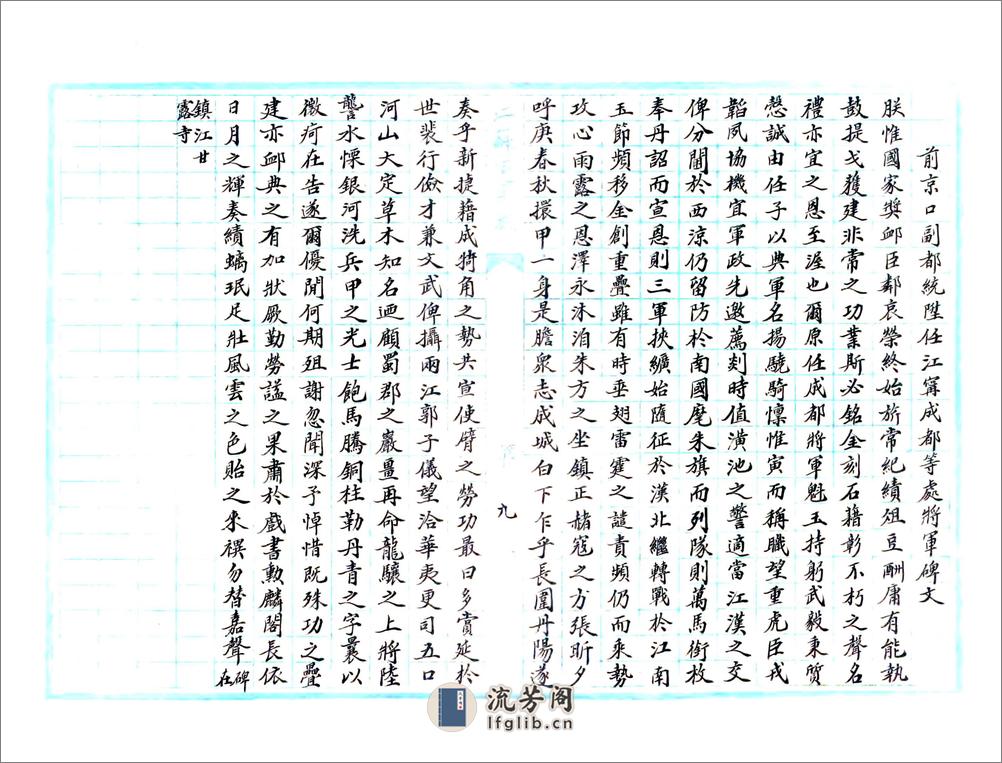 前京口副都統陞任江寧成都等處將軍碑文
朕惟國家獎卹臣鄰哀榮終始於常紀績俎豆酬庸有能執
鼓提戈獲建非常之功業斯必銘金刻石藉彰不朽之聲名
禮亦宜之恩至渥也爾原任成都將軍魁玉持躬武毅秉質
慤誠由任子以典軍名揚驍騎懍惟寅而稱職望重虎臣戎
韜夙協機宜軍政先邀薦剡時值潢池之警適當江漢之交
俾分閫於西涼仍留防於南國麾朱旗而列隊則萬馬銜枚
奉丹詔而宣恩則三軍挾纊始隨征於漢北繼轉戰於江南
玉節頻移金創重疊雖有時垂翅雷霆之譴責頻仍而乘勢
攻心雨露之恩澤永沐洎朱方之坐鎮正赭寇之方張昕夕
呼庚春秋擐甲一身是膽衆志成城白下乍乎長圍丹陽遂
九
奏乎新捷藉成犄角之勢共宣使臂之勞功最日多賞延於
世裴行儉才兼文武俾攝兩江郭子儀望洽華夷更司五口
河山大定草木知名迺顧蜀郡之巖畺再命龍驤之上將陸
讋水慄銀河洗兵甲之光士飽馬騰銅柱勒丹青之字曩以
微疴在告遂爾優閒何期殂謝忽聞深予悼惜既殊功之疊
建亦卹典之有加狀厥勤勞謚之果肅於戲書勳麟閣長依
日月之輝奏績螭珉足壯風雲之色貽之來禩勿替嘉聲碑在
鎮江甘
露寺
流芳阁
lfglib.cn